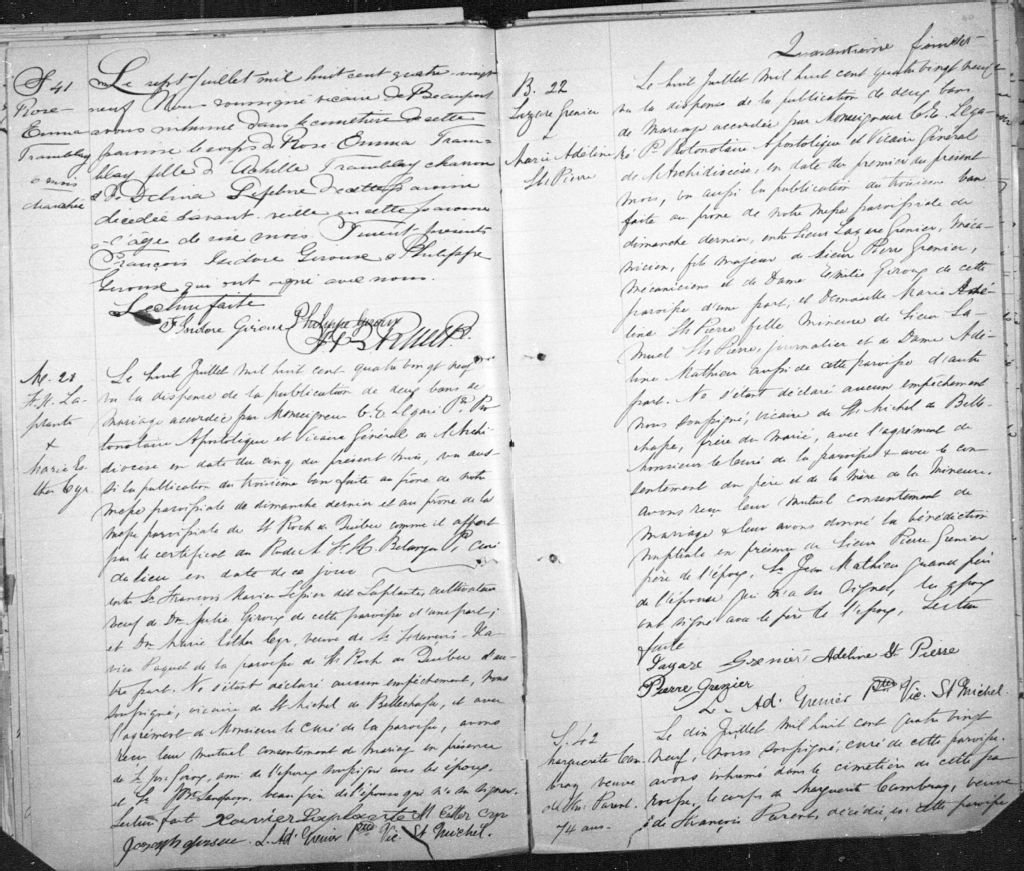 S 41
Rose
Emma
Tramblay
6 mois
Le sept Juillet mil huit cent quatre-vingt
neuf Nous soussigné vicaire de Beauport
avons inhumé dans le cimetière de cette
paroisse le corps de Rose Emma Tram-
blay fille d'Achille Tramblay charron
& De Delina Lefebre de cette paroisse
décédée l'avant-veille en cette paroisse
à l'âge de six mois. Furent présents
François Isidore Giroux & Philippe
Giroux qui ont signé avec nous.
Lecture faite
Isidore Giroux Philippe Giroux
M. 21
F. X. La-
plante
&
Marie Es-
ther Cyr
Le huit Juillet mil huit cent quatre vingt neuf
vu la dispense de la publication de deux bans de
mariage accordée par Monseigneur C. E. Légaré Pr. Pro-
tonotaire Apostolique et Vicaire Général de l'Archi-
diocèse en date du cinq du présent mois, vu aus-
si la publication du troisième ban faite au prône de notre
messe paroissiale de dimanche dernier et au prône de la
messe paroissiale de St Roch de Québec comme il appert
par le certificat du Révd F. H. Belanger Ptre curé
du lieu en date de ce jour
entre Sr François Xavier Lepier dit Laplante, cultivateur
veuf de Dme Julie Giroux de cette paroisse d'une part;
et Dme Marie Esther Cyr, veuve de Sr François-Xa-
vier Paquet de la paroisse de St Roch de Québec d'au-
tre part. Ne s'étant déclaré aucun empêchement, Nous
soussigné, vicaire de St Michel de Bellechasse, et avec
l'agrément de Monsieur le curé de la paroisse, avons
reçu leur mutuel consentement de mariage en présence
de Sr Jos. ami de l'époux soussigné avec les époux,
et Sr beau frère de l'épouse qui n'a su signer.
Lecture fait Xavier Laplante M Esther Cyr
L. Ad. Grenier Ptre Vic. St Michel.
Quarantième feuillet
B. 22
Lazare Grenier
&
Marie Adéline
St Pierre
Le huit Juillet mil huit cent quatre vingt neuf
vu la dispense de la publication de deux bans
de mariage accordée par Monseigneur C. E. Léga-
ré Pr. Protonotaire Apostolique et Vicaire Général
de l'Archidiocèse, en date du premier du présent
mois, vu aussi la publication du troisième ban
faite au prône de notre messe paroissiale de
dimanche dernier, entre Sieur Lazare Grenier, méca-
nicien, fils majeur de Sieur Pierre Grenier,
mécanicien et de Dame Emilie Giroux de cette
paroisse d'une part, et Demoiselle Marie Adé-
line St Pierre fille mineure de Sieur La-
muel St Pierre, journalier et de Dame Adé-
line Mathieu aussi de cette paroisse d'autre
part. Ne s'étant déclaré aucun empêchement
nous soussigné, vicaire de St Michel de Belle-
chasse, frère du marié, avec l'agrément de
Monsieur le Curé de la paroisse & avec le con-
sentement du père et de la mère de la mineure,
avons reçu leur mutuel consentement de
mariage & leur avons donné la bénédiction
nuptiale en présence de Sieur Pierre Grenier
père de l'époux, Sr Jean Mathieu grand père
de l'épouse qui n'a su signer, les époux
ont signé avec le père de l'époux, Lecture
faite
Lazare Grenier Adeline St Pierre
Pierre Grenier
L. Ad. Grenier Ptre Vic. St Michel.
S. 42
Marguerite Cam-
bray veuve
de Frs. Parent.
74 ans.
Le dix Juillet mil huit cent quatre vingt
neuf, nous soussigné, curé de cette paroisse,
avons inhumé dans le cimetière de cette pa-
roisse, le corps de Marguerite Cambray, veuve
de François Parent, décédée, en cette paroisse